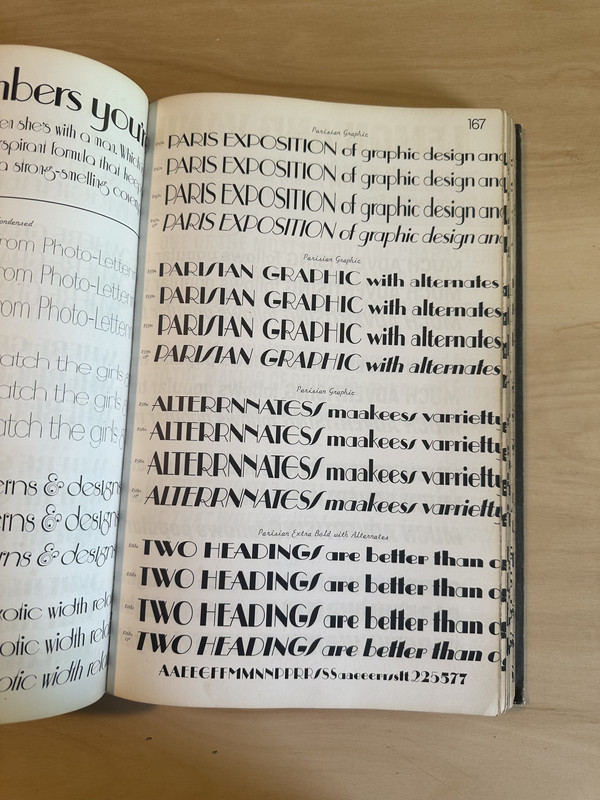 mbers you'r
en she's with a man. Which
rspirant formula that kee
a strong-smelling
ondensed
rom Photo-Letteri
rom Photo-Letteri
rom Photo-Letteri
atch the girls
atch the girls
atch the girls
erns & designs
erns & designs
erns & designs
xotic width rela
otic width rela
otic width rela
167
Parisian Graphic
PARIS EXPOSITION of graphic design and
PARIS EXPOSITION of graphic design and
PARIS EXPOSITION of graphic design and
PARIS EXPOSITION of graphic design and
Parisian Graphic
PARISIAN GRAPHIC with alternates
PARISIAN GRAPHIC with alternates
PARISIAN GRAPHIC with alternates
PARISIAN GRAPHIC with alternates
Parisian Graphic
ALTERRNNATESS maakeess varrietty
ALTERRNNATESS maakeess varrietty
ALTERRNNATESS maakeess varrietty
ALTERRNNATESS maakeess varrietty
Parisian Extra Bold with Alternates
TWO HEADINGS are better than o
TWO HEADINGS are better than o
TWO HEADINGS are better than o
TWO HEADINGS are better than o
AAEEGFFMMNNPPRRSSS aaeeerrsstt 225577